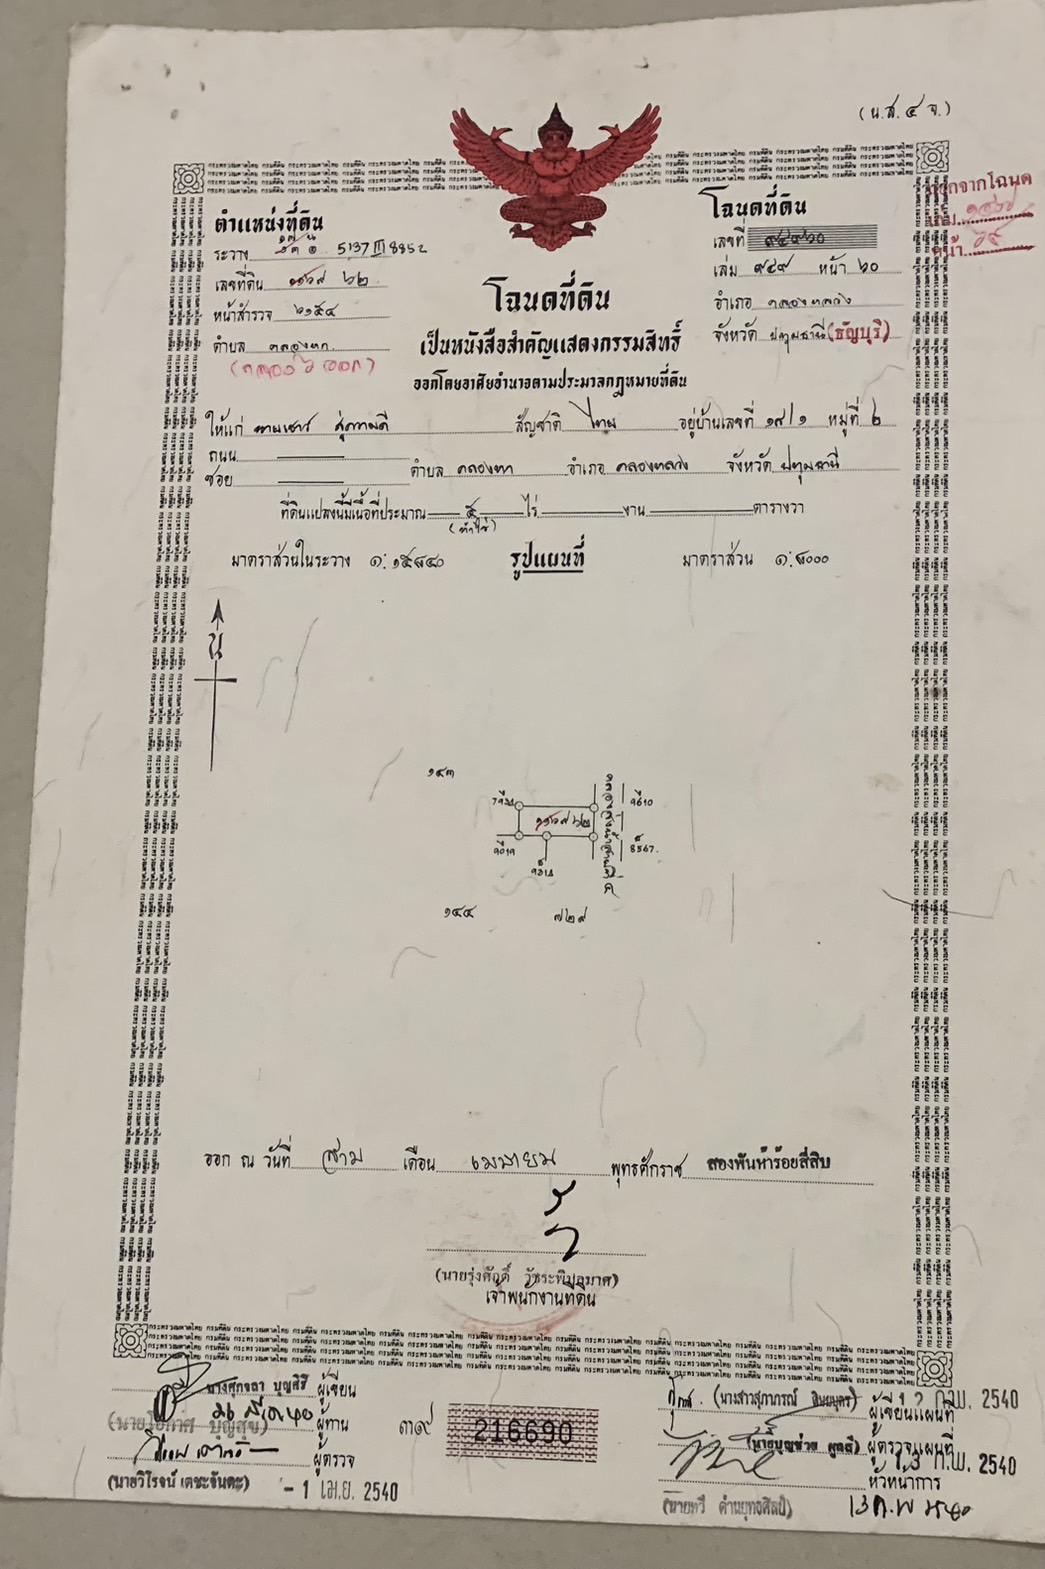 (น.ส. ๔ จ.)
ตำแหน่งที่ดิน
ระวาง 5137 III 8852
เลขที่ดิน ๖๒
หน้าสำรวจ ๖๑๕๔
ตำบล คลองหก
(คลอง ๖ ออก)
โฉนดที่ดิน
เลขที่
เล่ม ๙๔๙ หน้า ๖๐
อำเภอ คลองหลวง
จังหวัด ปทุมธานี (ธัญบุรี)
ออกจากโฉนด
เล่ม
หน้า
โฉนดที่ดิน
เป็นหนังสือสำคัญแสดงกรรมสิทธิ์
ออกโดยอาศัยอำนาจตามประมวลกฎหมายที่ดิน
ให้แก่ สัญชาติ ไทย อยู่บ้านเลขที่ ๑๙/๑ หมู่ที่ ๒
ถนน
ซอย ตำบล คลองหก อำเภอ คลองหลวง จังหวัด ปทุมธานี
ที่ดินแปลงนี้มีเนื้อที่ประมาณ ๕ ไร่ งาน ตารางวา
(ห้าไร่)
มาตราส่วนในระวาง ๑:๑๕๘๔๐ รูปแผนที่ มาตราส่วน ๑:๘๐๐๐
น
๑๔๓
๖๒
8567
๑๔๔
๗๒๙
ออก ณ วันที่ สาม เดือน เมษายน พุทธศักราช สองพันห้าร้อยสี่สิบ
(นายรุ่งศักดิ์ วัชระพิมลมาศ)
เจ้าพนักงานที่ดิน
ผู้เขียน
(นายโอภาศ บุญสุข) ผู้ทาน
ผู้ตรวจ
(นายวิโรจน์ เดชะจันตะ) - 1 เม.ย. 2540
๓๙ 216690
(นางสาวสุภาภรณ์ ) ผู้เขียนแผนที่ 12 ก.พ. 2540
ผู้ตรวจแผนที่
13 ก.พ. 2540
หัวหน้าการ
(นายทวี ด่านยุทธศิลป์) 13 ก.พ. ๒๕๔๐